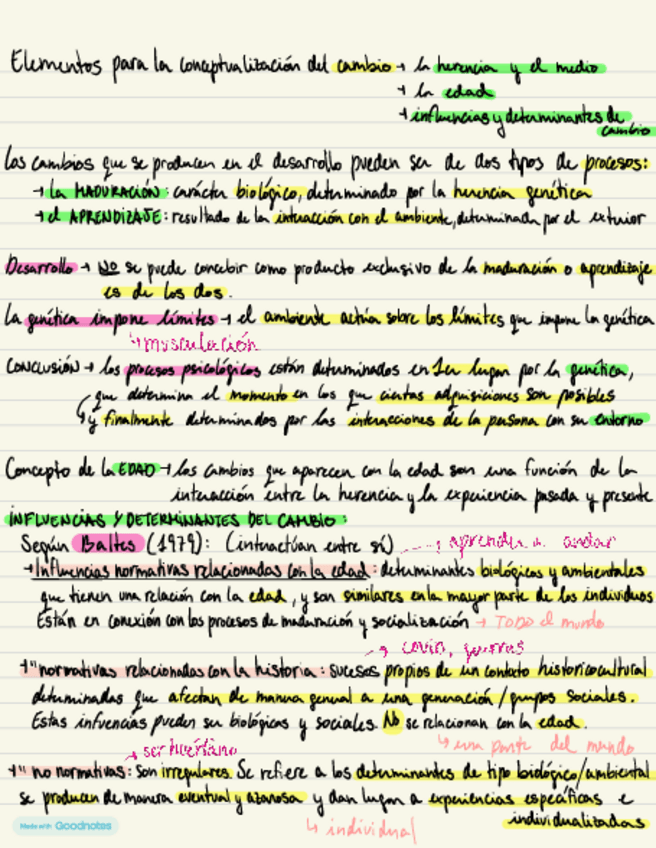 Elementos para la conceptualización del cambio → la herencia y el medio
→ la edad
→ influencias y determinantes de cambio
Los cambios que se producen en el desarrollo pueden ser de dos tipos de procesos:
→ la MADURACIÓN: carácter biológico, determinado por la herencia genética
→ el APRENDIZAJE: resultado de la interacción con el ambiente, determinada por el exterior
Desarrollo → NO se puede concebir como producto exclusivo de la maduración o aprendizaje
es de los dos.
La genética impone límites → el ambiente actúa sobre los límites que impone la genética
↳ musculación
CONCLUSIÓN → los procesos psicológicos están determinados en 1er lugar por la genética,
que determina el momento en los que ciertas adquisiciones son posibles
↳ y finalmente determinados por las interacciones de la persona con su entorno
Concepto de la EDAD → los cambios que aparecen con la edad son una función de la
interacción entre la herencia y la experiencia pasada y presente
INFLUENCIAS Y DETERMINANTES DEL CAMBIO:
Según Baltes (1979): (interactúan entre sí) → aprender a andar
→ Influencias normativas relacionadas con la edad: determinantes biológicos y ambientales
que tienen una relación con la edad, y son similares en la mayor parte de los individuos
Están en conexión con los procesos de maduración y socialización → TODO el mundo
→ covid, guerras
→ " normativas relacionadas con la historia: sucesos propios de un contexto historicocultural
determinadas que afectan de manera general a una generación/grupos sociales.
Estas infuencias pueden ser biológicas y sociales. No se relacionan con la edad.
↳ una parte del mundo
→ ser huérfano
→ " no normativas: son irregulares. Se refiere a los determinantes de tipo biológico/ambiental
se producen de manera eventual y azarosa y dan lugar a experiencias específicas e
individualizadas
↳ individual
Made with Goodnotes